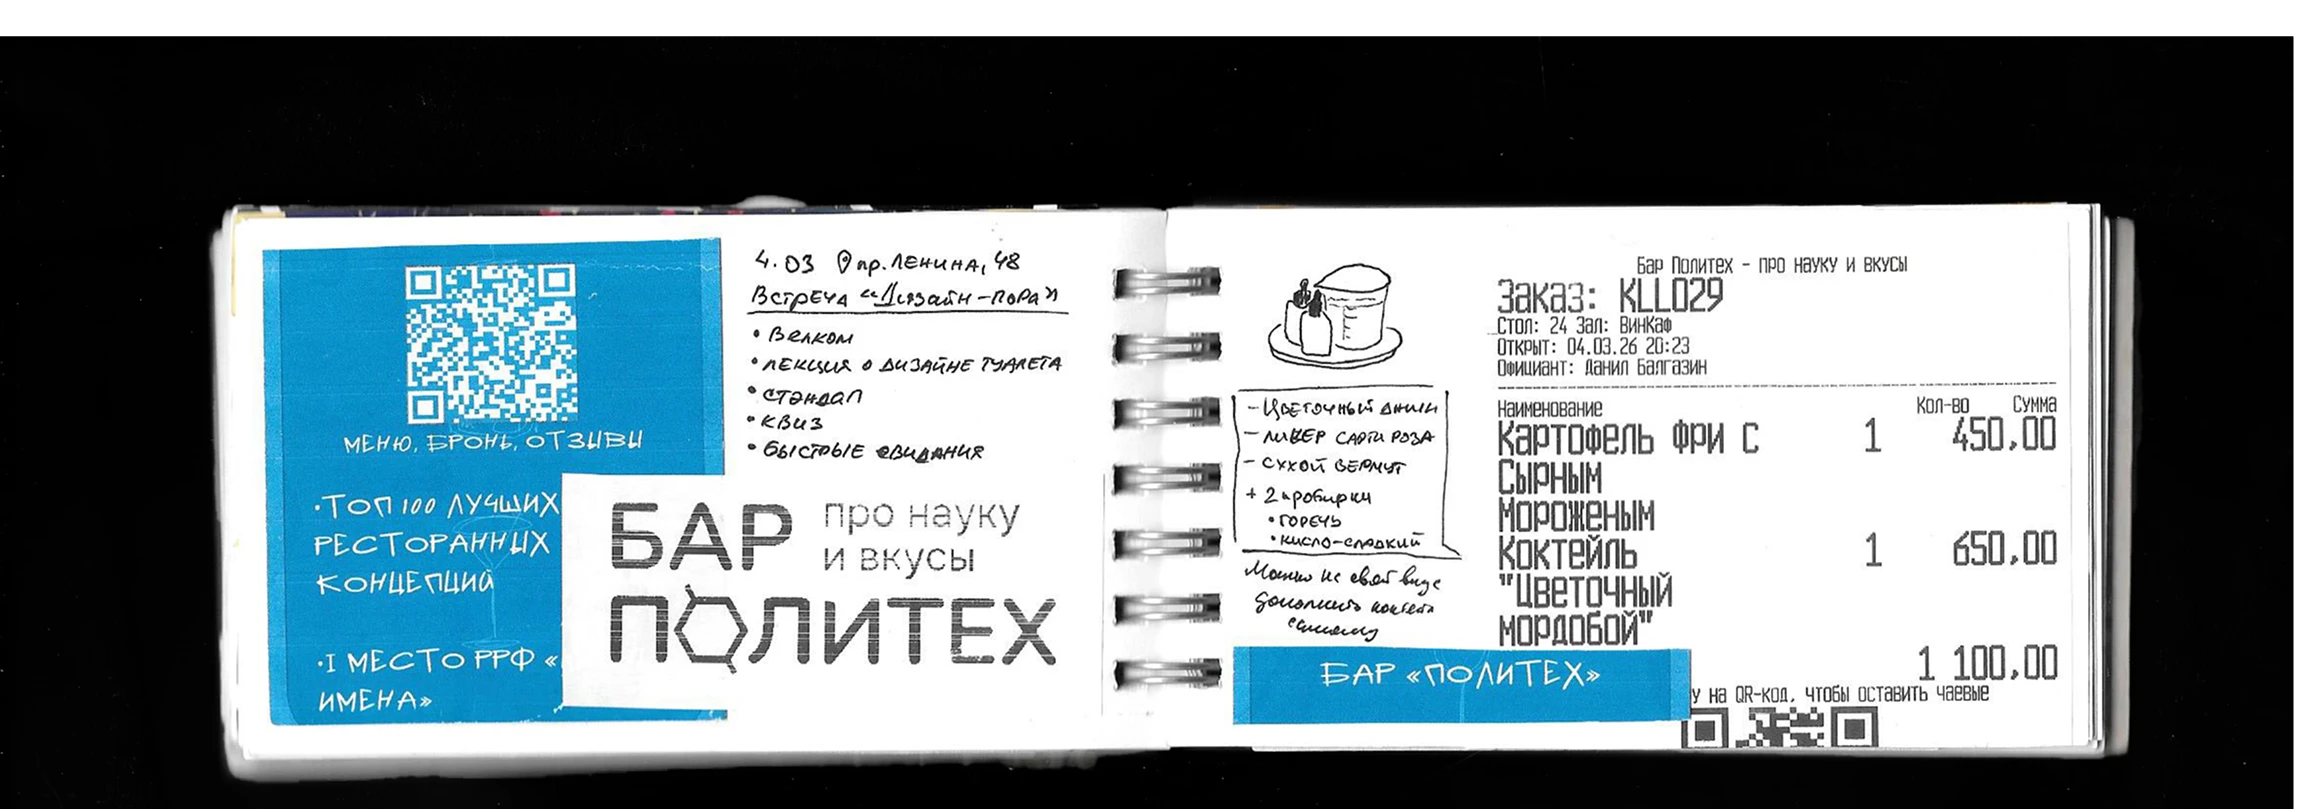 МЕНЮ, БРОНЬ, ОТЗЫВЫ
•ТОП 100 ЛУЧШИХ
РЕСТОРАННЫХ
КОНЦЕПЦИЙ
•I МЕСТО РРФ «
ИМЕНА»
4.03 пр. ЛЕНИНА, 48
Встреча "Дизайн-пора"
• Велком
• лекция о дизайне туалета
• стэндап
• квиз
• быстрые свидания
БАР про науку
и вкусы
ПОЛИТЕХ
- Цветочный
- ликер сарти роза
- сухой вермут
+ 2 пробирки
• горечь
• кисло-сладкий
Можно на свой вкус
дополнить
самому
БАР «ПОЛИТЕХ»
Бар Политех - про науку и вкусы
Заказ: KLL029
Стол: 24 Зал: ВинКаф
Открыт: 04.03.26 20:23
Официант: Данил Балгазин
Наименование Кол-во Сумма
Картофель фри с 1 450,00
Сырным
Мороженым
Коктейль 1 650,00
"Цветочный
мордобой"
1 100,00
у на QR-код, чтобы оставить чаевые